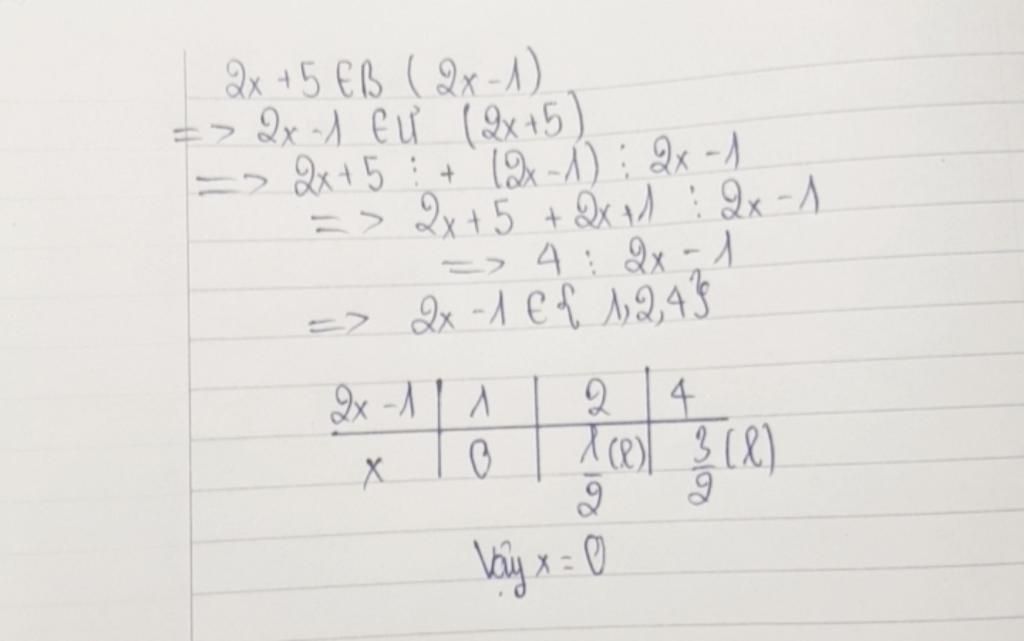 2x + 5 ∈ B ( 2x - 1 )
=> 2x - 1 ∈ Ư (2x+5)
=> 2x+5 ⋮ + (2x-1) ⋮ 2x - 1
=> 2x+5 + 2x+1 ⋮ 2x - 1
=> 4 ⋮ 2x - 1
=> 2x - 1 ∈ { 1,2,4}
2x - 1 | 1 | 2 | 4
x | 0 | 1/2 (l) | 3/2 (l)
Vậy x = 0